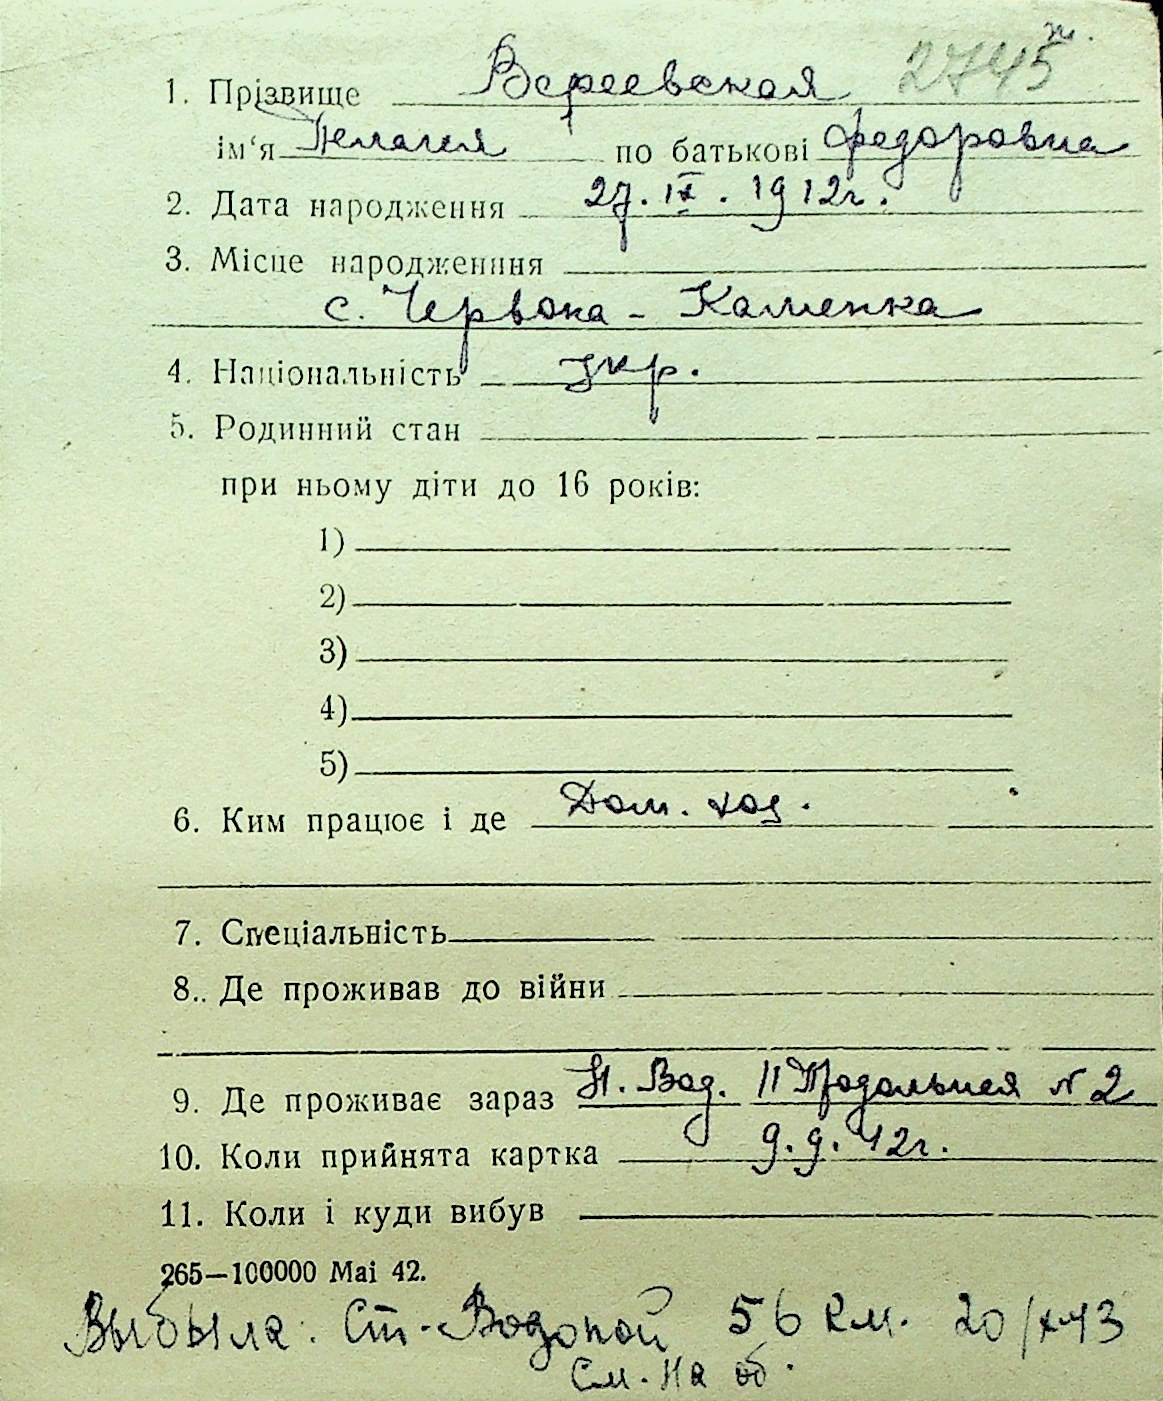 ж.
2745
1. Прізвище Вереевская
ім‘я Пелагея по батькові Федоровна
2. Дата народження 27. IX. 1912г.
3. Місце народженння
с. Червона - Каменка
4. Національність укр.
5. Родинний стан
при ньому діти до 16 років:
1)
2)
3)
4)
5)
6. Ким працює і де Дом. хоз.
7. Спеціальність
8.. Де проживав до війни
9. Де проживає зараз Н. Вод. II Продольная № 2
10. Коли прийнята картка 9. 9. 42г.
11. Коли і куди вибув
265—100000 Mai 42.
Выбыла: Ст. Водопой 56 км. 20/X 43
См. на об.